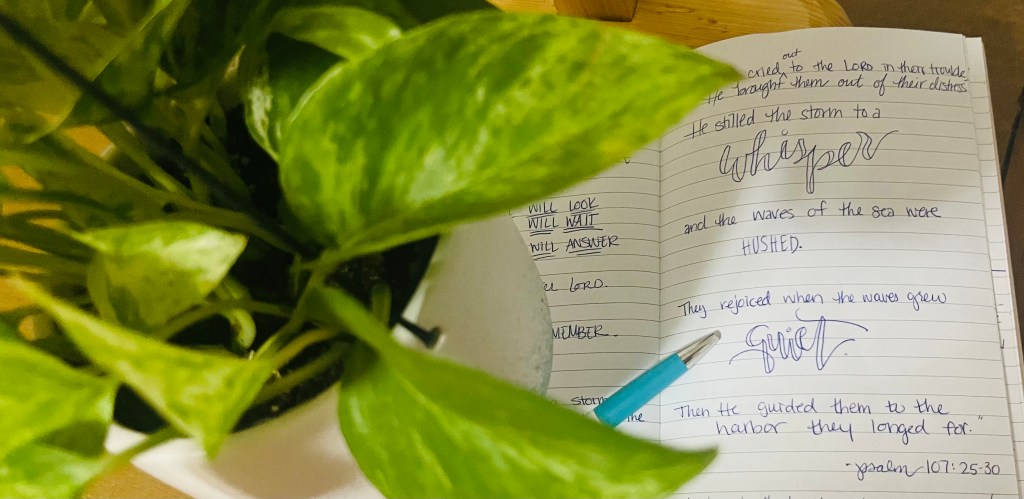 WILL LOOK
WILL WAIT
WILL ANSWER
LORD.
MEMBER.
storm
the
out
cried ^ to the LORD in their trouble,
He brought them out of their distress
He stilled the storm to a
whisper
and the waves of the sea were
HUSHED.
They rejoiced when the waves grew
quiet.
Then He guided them to the
harbor they longed for."
-psalm 107:25-30